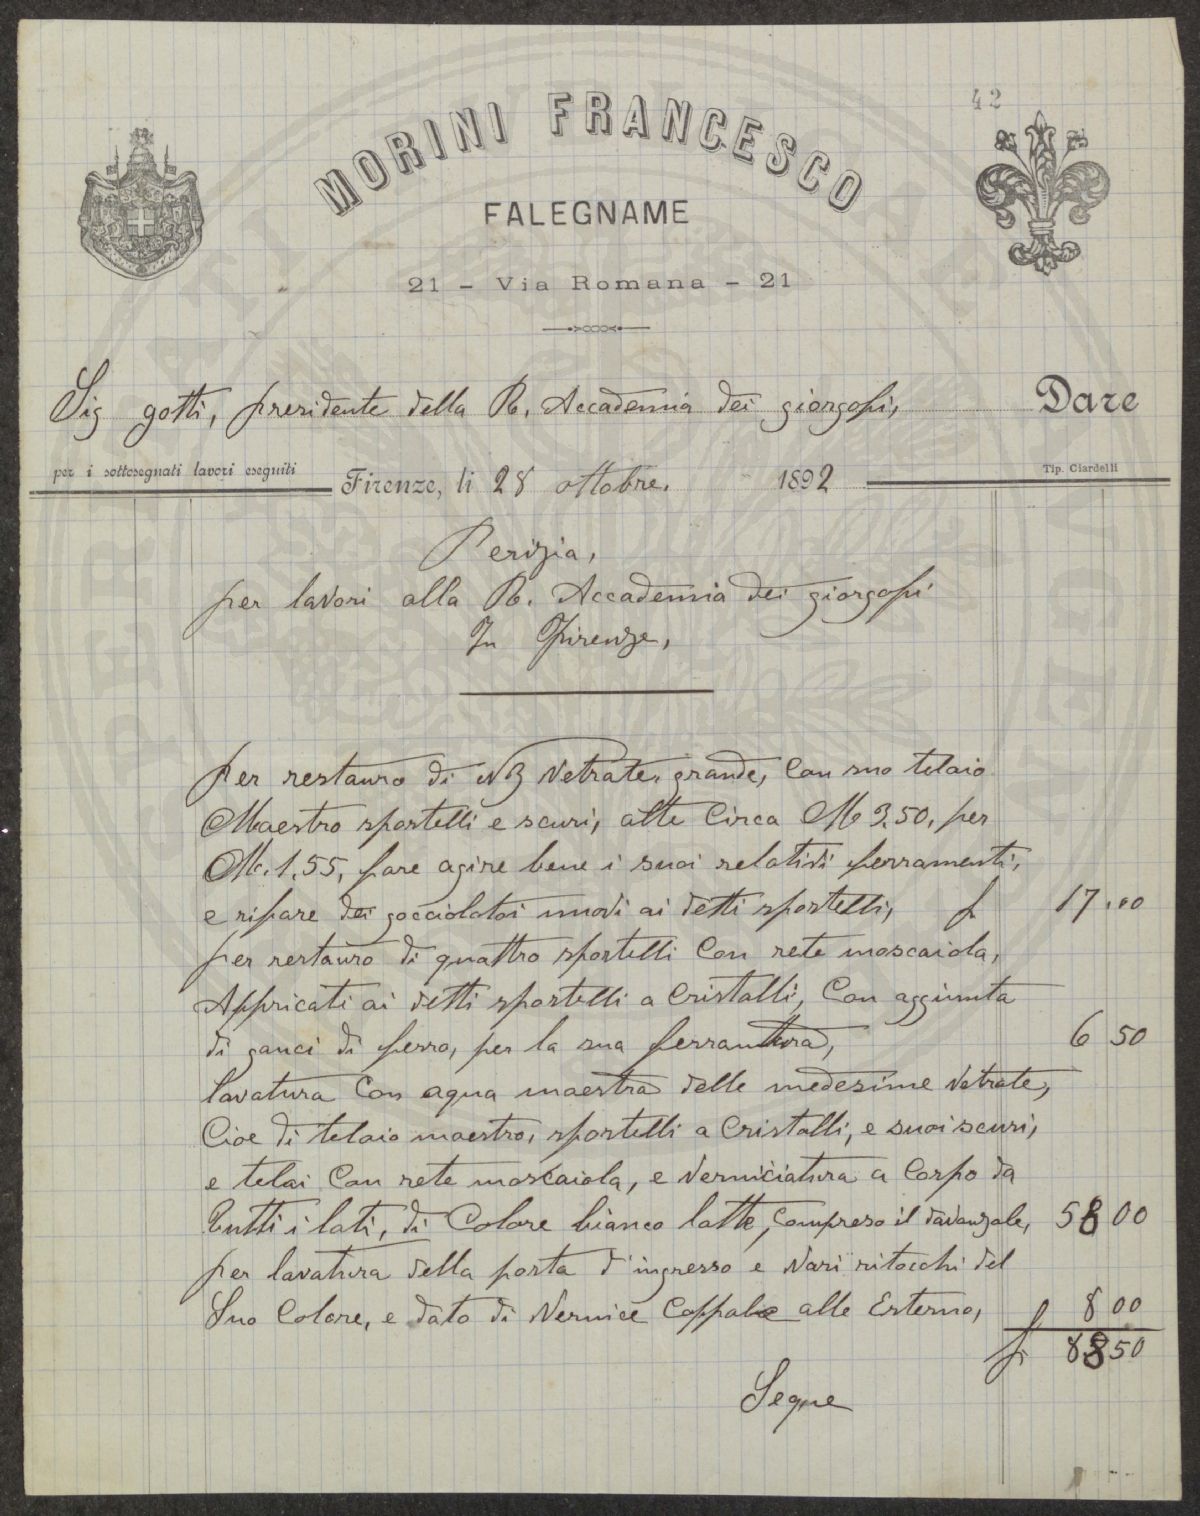 42
MORINI FRANCESCO
FALEGNAME
21 - Via Romana - 21
Sig gotti, presidente della R. Accademia dei giorgofi,
Dare
per i sottosegnati lavori eseguiti
Firenze, li 28 ottobre. 1892
Tip. Ciardelli
Perizia,
per lavori alla R. Accademia dei giorgofi
In Firenze,
per restauro di vetrate, grande, Con suo telaio
Maestro sportelli e scuri, alte Circa M 3.50, per
M. 1.55, fare agire bene i suoi relativi ferramenti,
e rifare dei gocciolatoi nuovi ai detti sportelli, £ 17.00
per restauro di quattro sportelli Con rete moscaiola,
Appricati ai detti sportelli a Cristalli, Con aggiunta
di ganci di ferro, per la sua ferramtura, 6 50
lavatura Con aqua maestra delle medesime vetrate,
Cioe di telaio maestro, sportelli a Cristalli, e suoi scuri,
e telai Con rete moscaiola, e verniciatura a Corpo da
tutti i lati, di Colore bianco latte, Compreso il davanzale, 58 00
per lavatura della porta d'ingresso e vari ritocchi del
Suo Colore, e dato di vernice Coppale alle Esterno, £ 8 00
£ 88 50
Segue